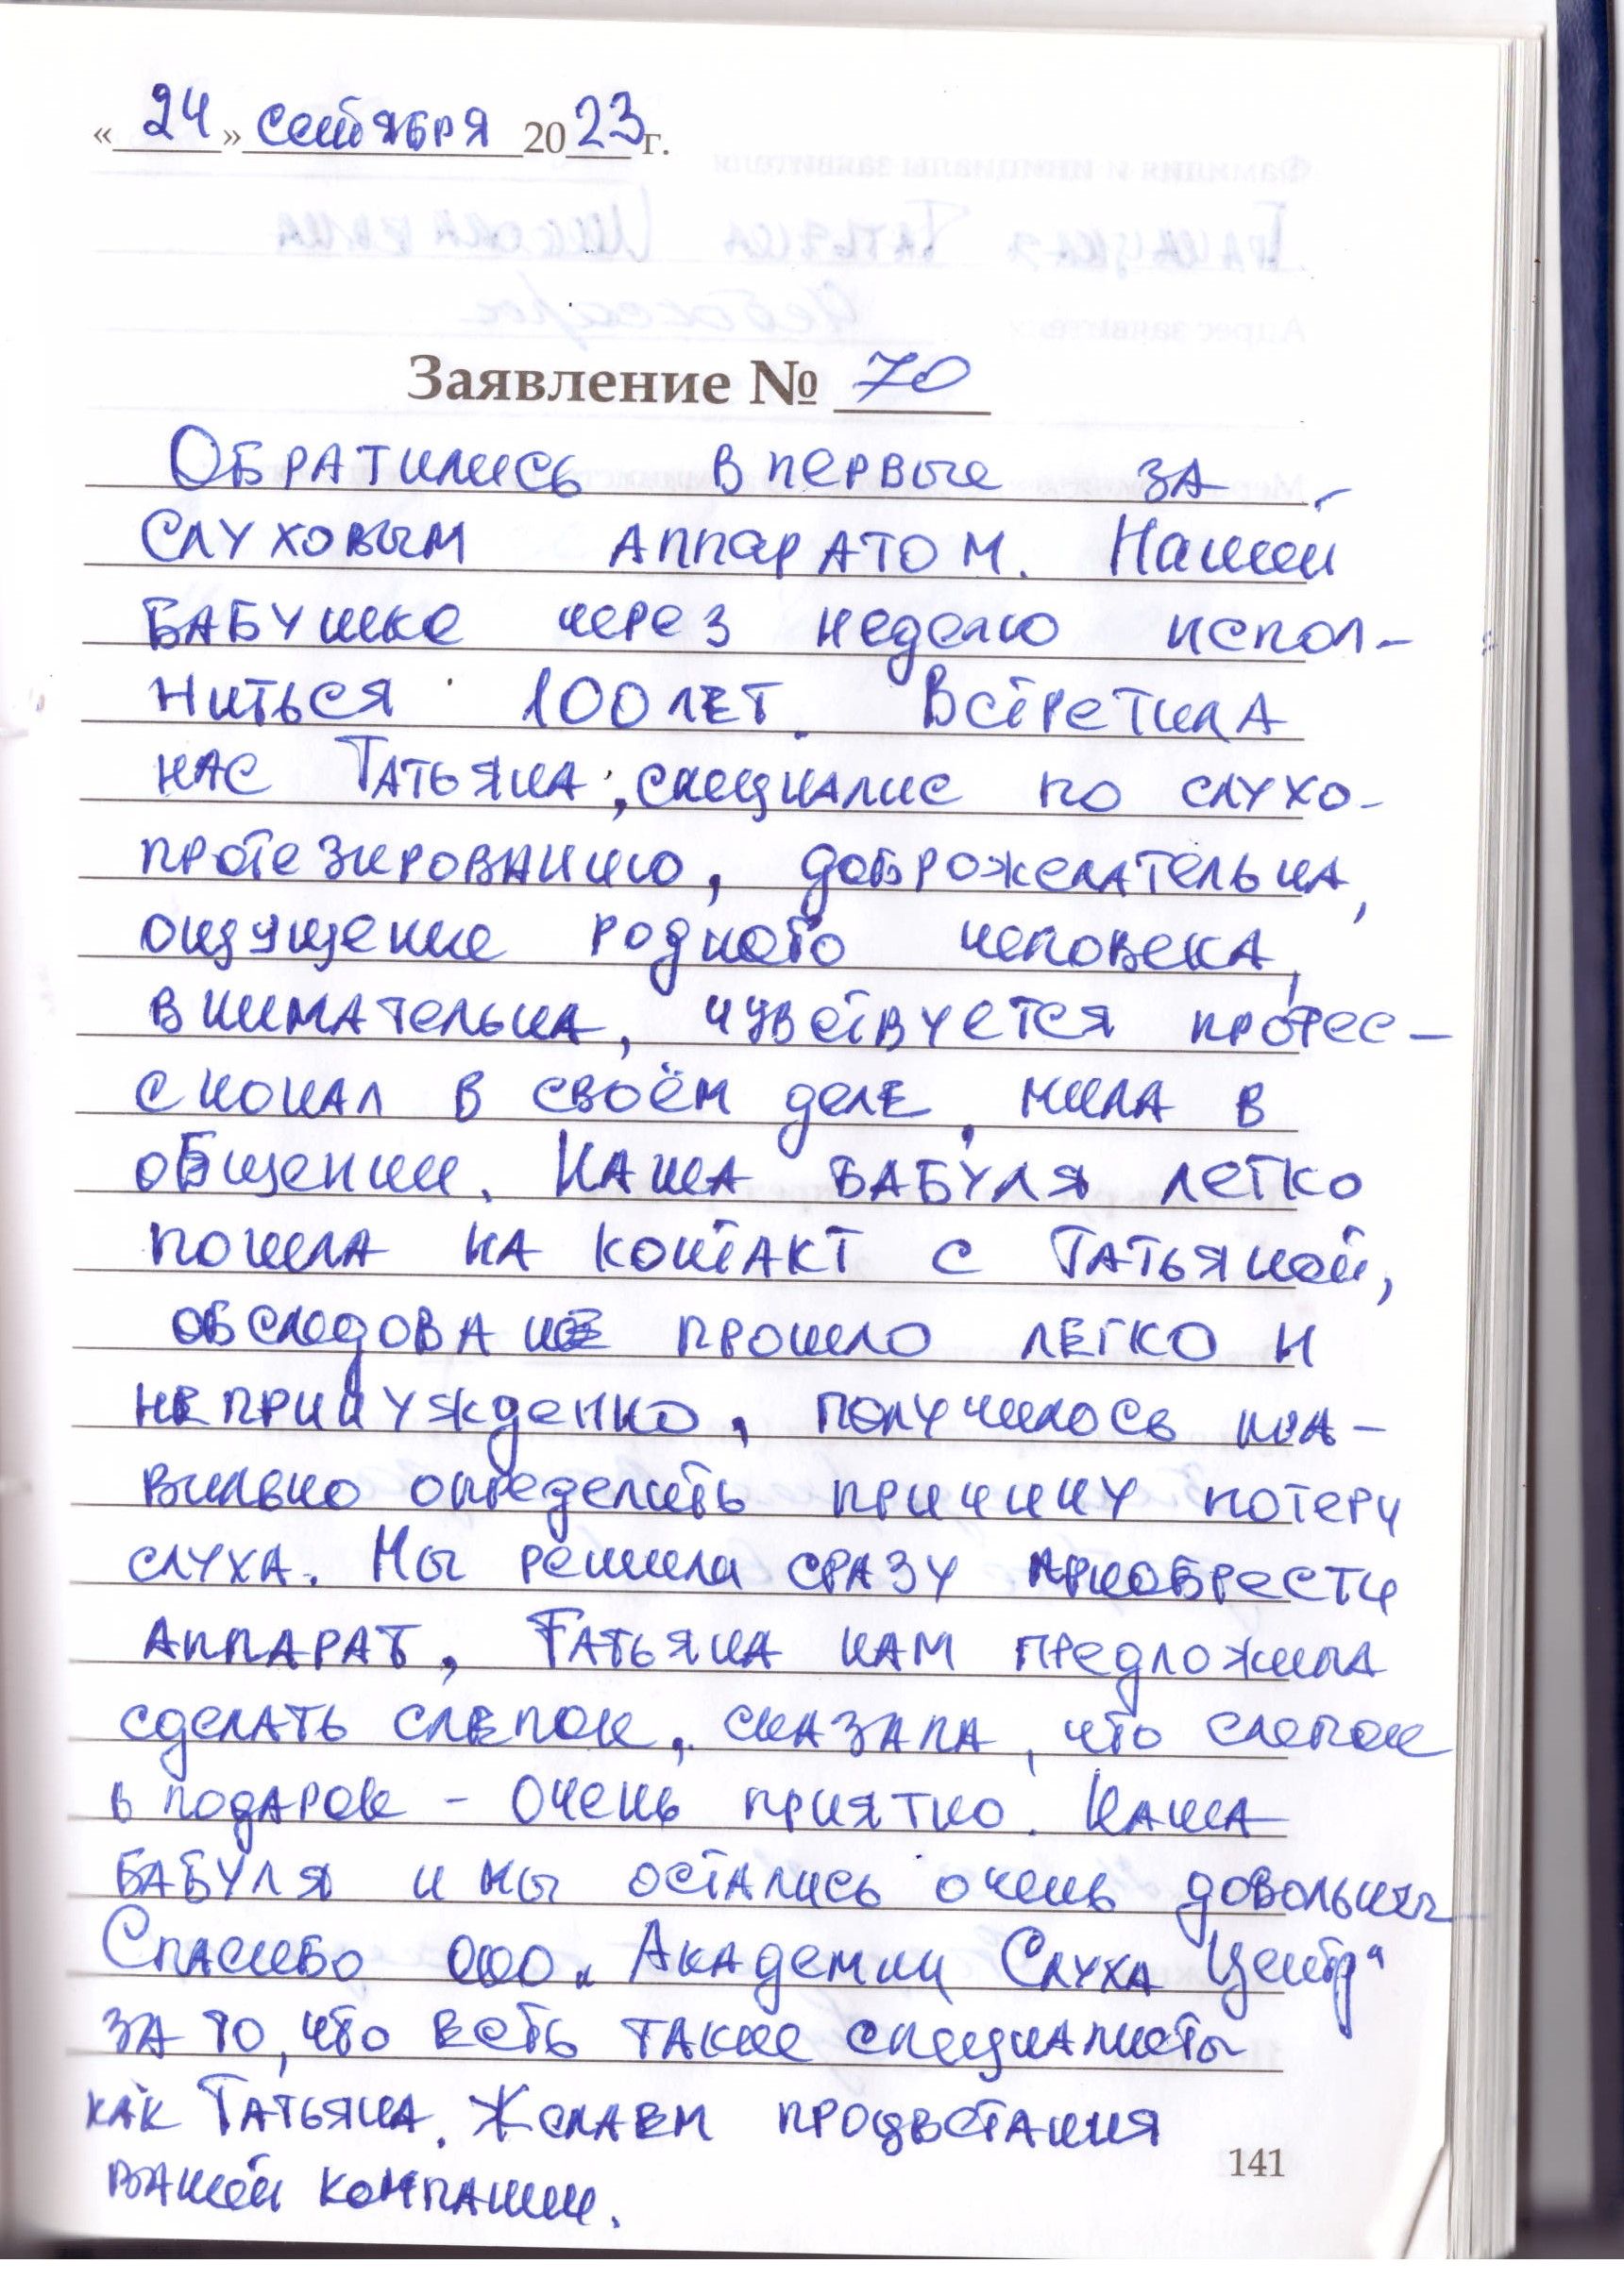 « 24 » сентября 2023 г.
Заявление № 70
Обратились впервые за
слуховым аппаратом. Нашей
бабушке через неделю испол-
ниться 100 лет. Встретила
нас Татьяна, специалис по слухо-
протезированию, доброжелательна,
ощущение родного человека,
внимательна, чувствуется профес-
сионал в своём деле, мила в
общении. Наша бабуля легко
пошла на контакт с Татьяной,
обследование прошло легко и
непринужденно, получилось пра-
вильно определить причину потери
слуха. Мы решили сразу приобрести
аппарат, Татьяна нам предложила
сделать слепок, сказала, что слепок
в подарок - очень приятно. Наша
бабуля и мы остались очень довольны
Спасибо ООО „Академии Слуха Центр“
за то, что есть такие специалисты
как Татьяна. Желаем процветания
вашей компании.
141